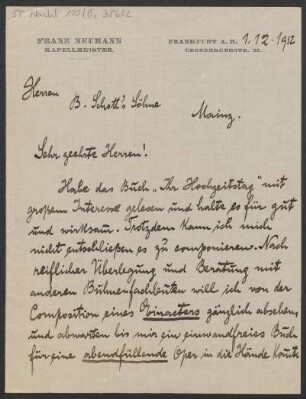 55 Nachl 100/B, 35622
FRANZ NEUMANN
KAPELLMEISTER.
FRANKFURT A. M. 1.12.1912
CRONBERGERSTR.
Herren
B. Schott's Söhne
Mainz.
Sehr geehrte Herren!
Habe das Buch „Ihr Hochzeitstag" mit
großem Interesse gelesen und halte es für gut
und wirksam. Trotzdem kann ich mich
nicht entschließen es zu componieren. Nach
reiflicher Überlegung und Beratung mit
anderen Bühnenfachleuten will ich von der
Composition eines Einacters gänzlich absehen,
und abwarten bis mir ein einwandfreies Buch
für eine abendfüllende Oper in die Hände kommt.